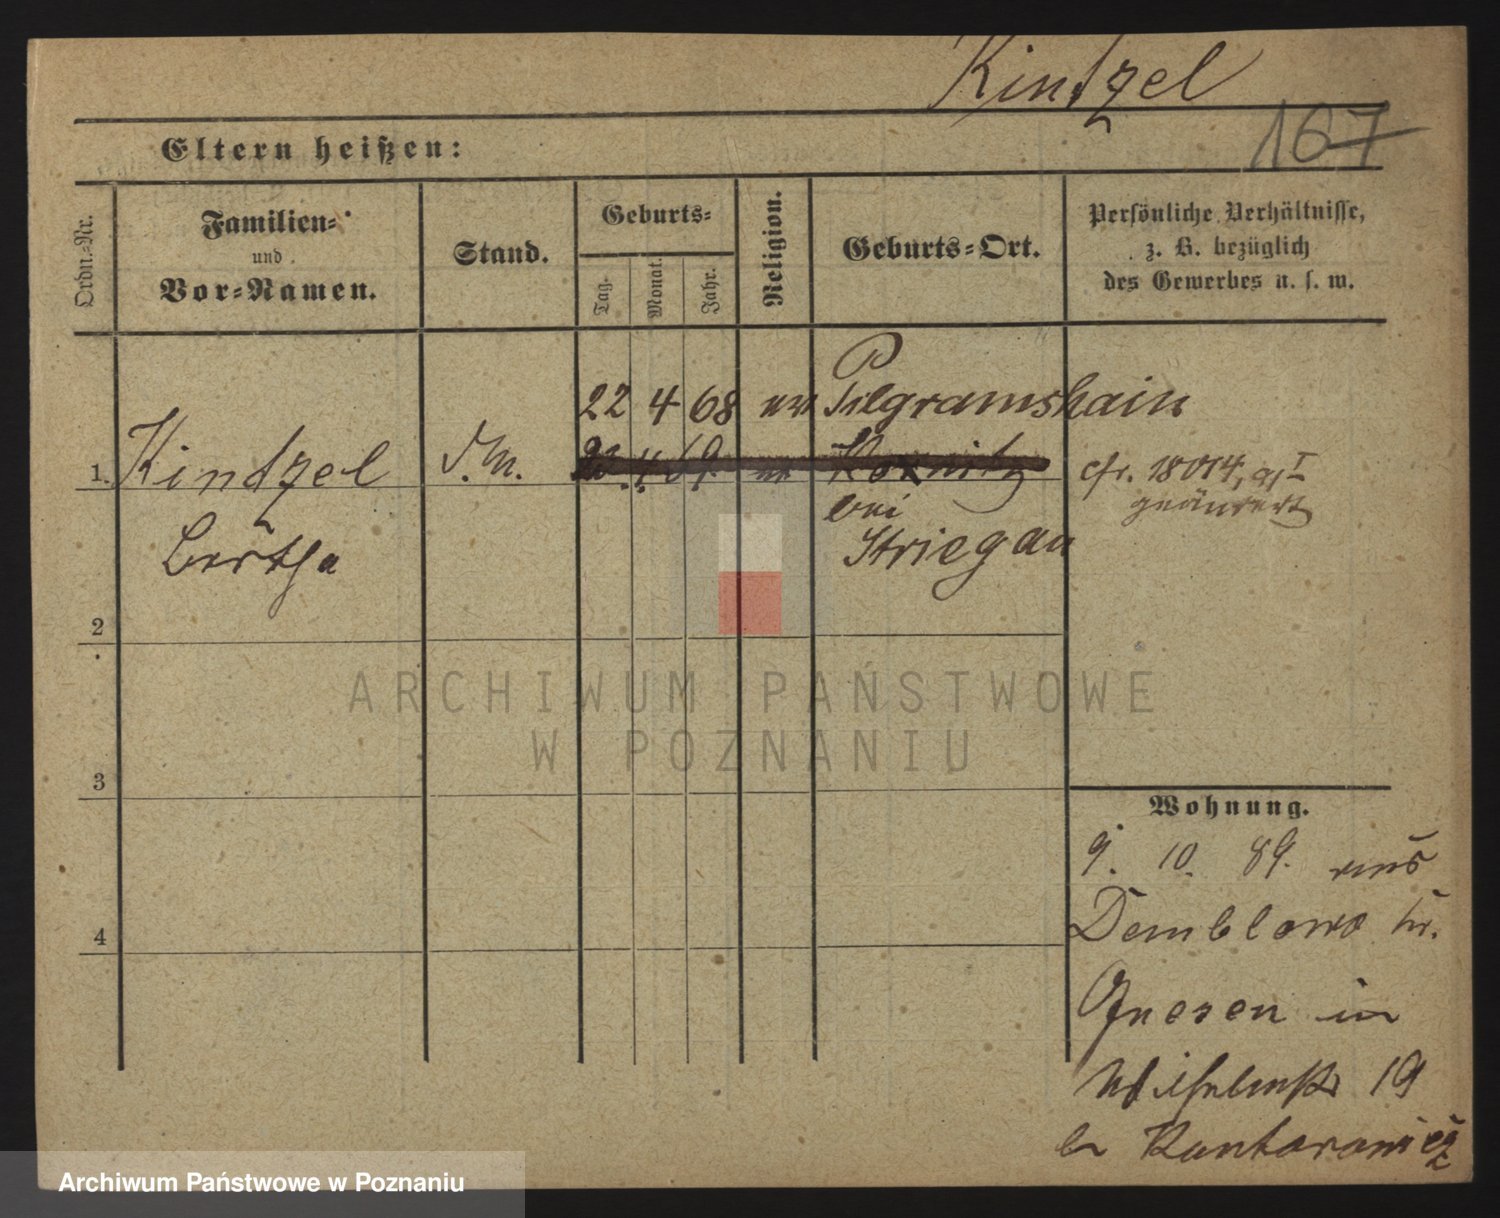 Kintzel
167
Eltern heißen:
Ordn.-Nr.
Familien-
und
Vor-Namen.
Stand.
Geburts-
Tag.
Monat.
Jahr.
Religion.
Geburts-Ort.
Persönliche Verhältnisse,
z. B. bezüglich
des Gewerbes u. s. w.
22 4 68 Pilgramshain
1. Kintzel 4. 69. cfr. 18014,
geändert
bei
Bertha Striegau
2
3
4
Wohnung.
9. 10. 89. aus
Demblowo kr.
Gnesen in
Wilhelmstr 19
b Kantorowicz
ARCHIWUM PAŃSTWOWE
W POZNANIU
Archiwum Państwowe w Poznaniu